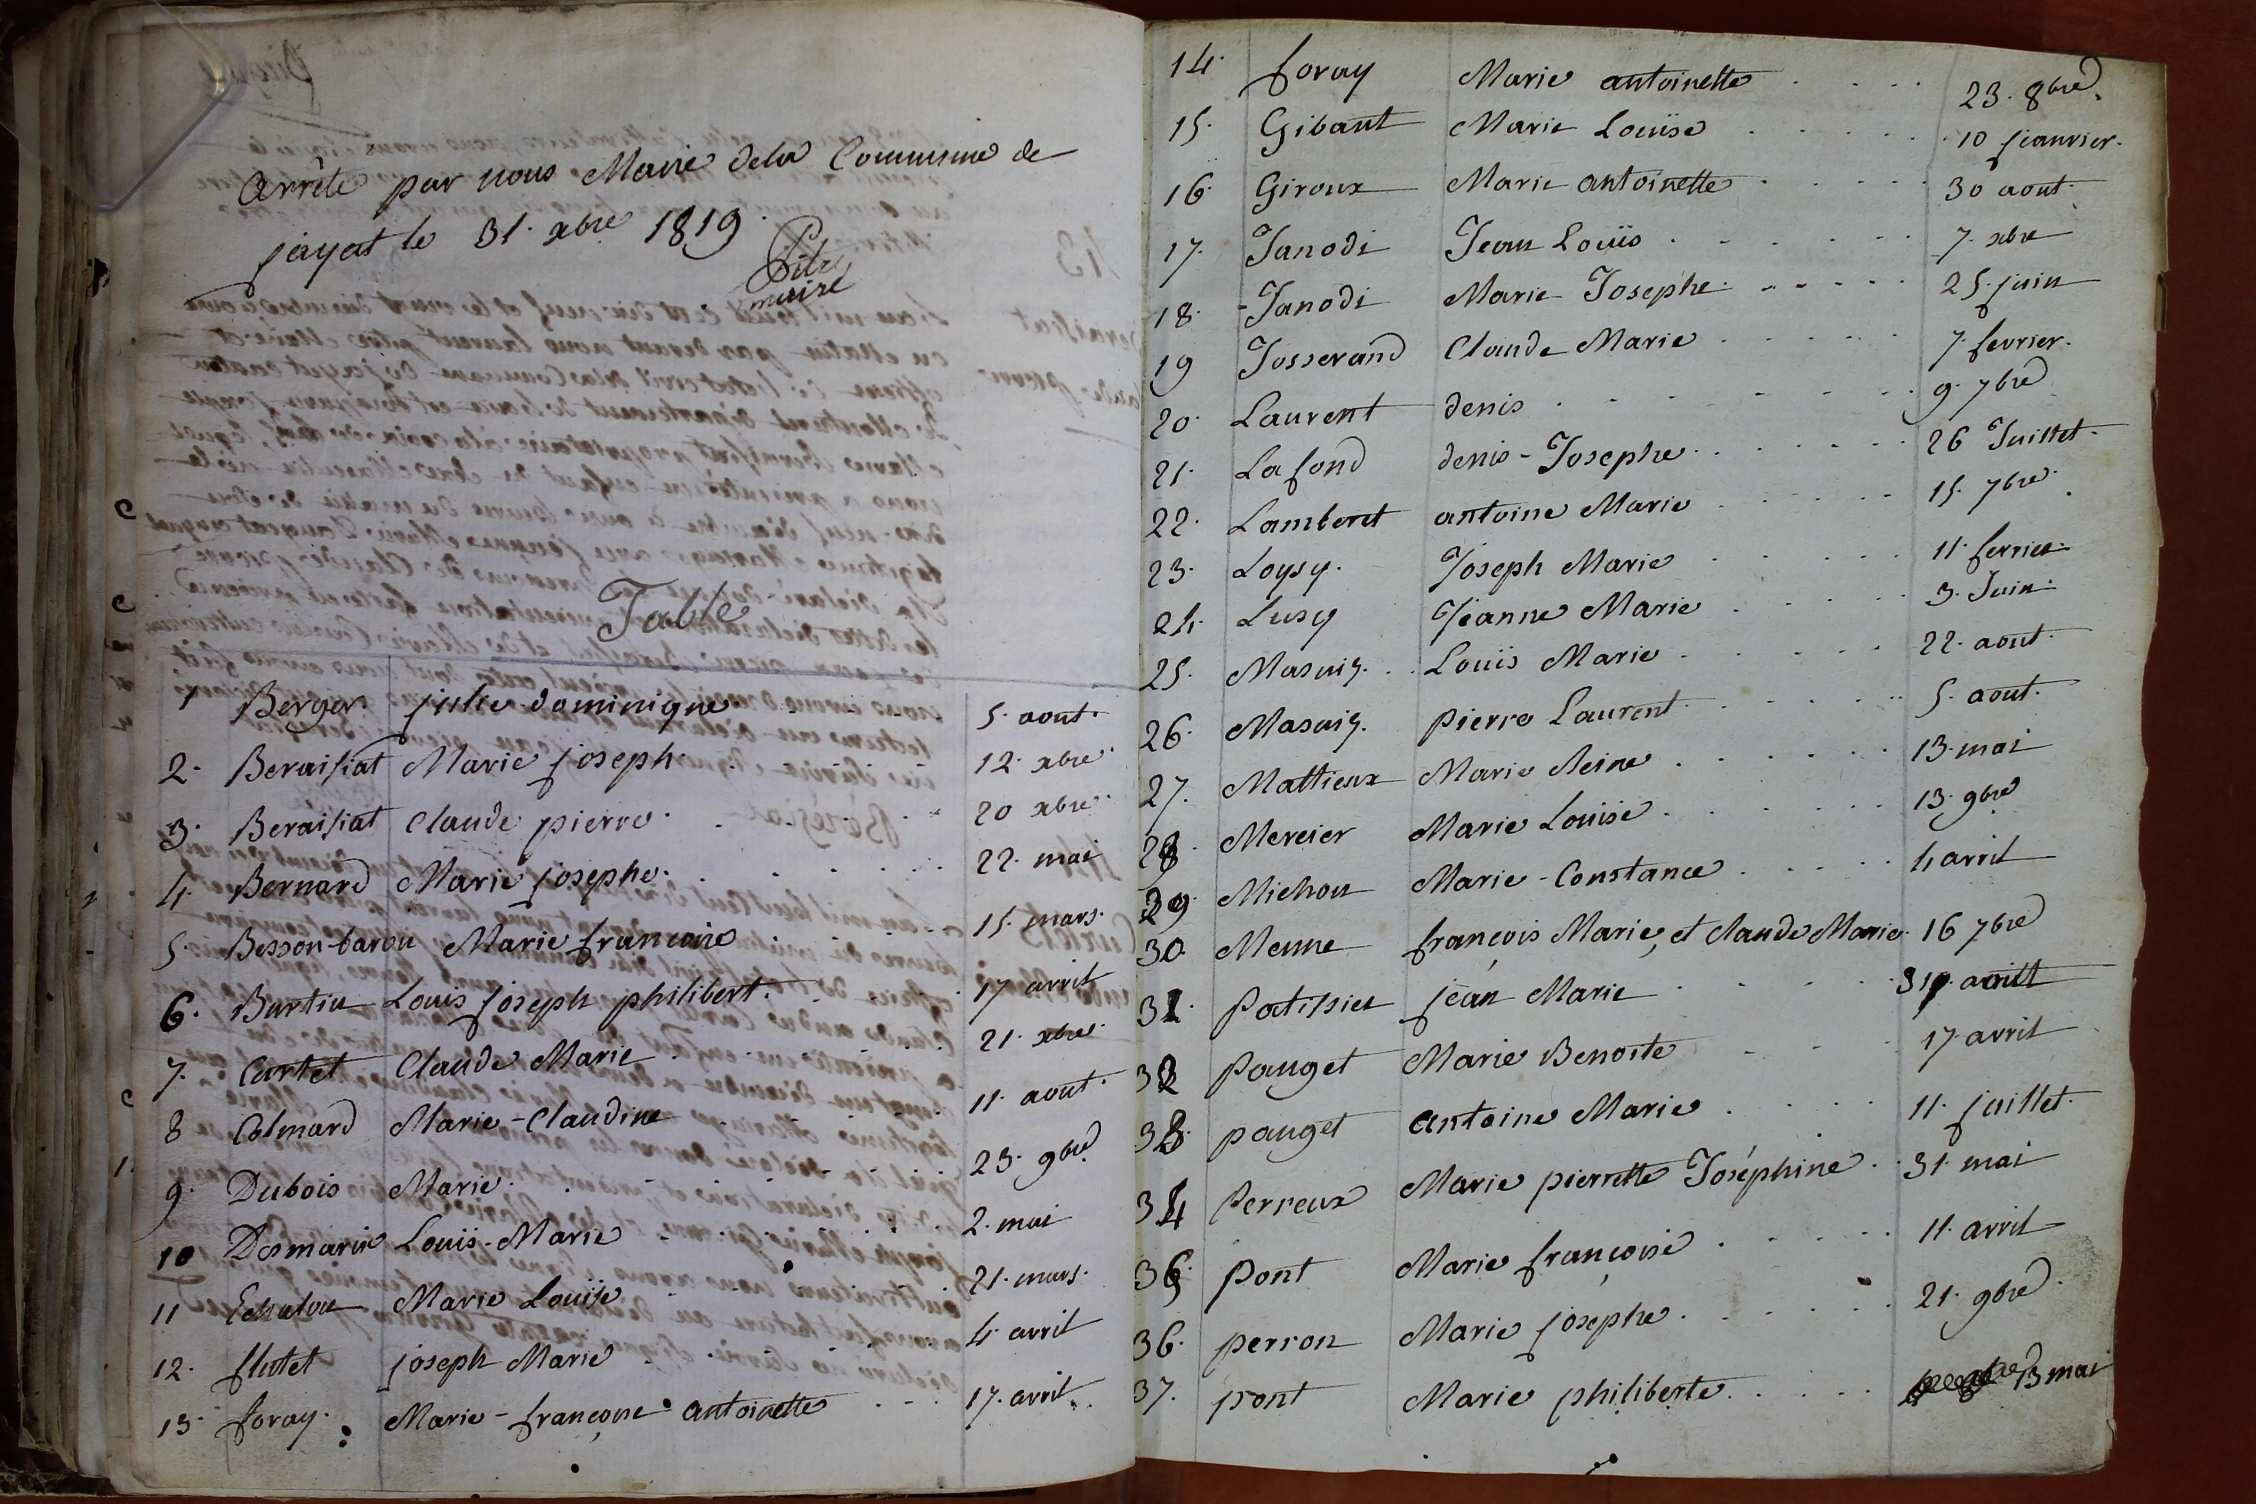 Arrêté par nous Maire dela Commune de
jayat le 31. xbre 1819.
Pitre
maire
Table
1 Berger julie dominique 5. aout.
2. Beraisiat Marie joseph. 12. xbre.
3. Beraisiat Claude pierre. 20 xbre.
4. Bernard Marie josephe. 22. mai
5. Besson-baron Marie françoise 15. mars.
6. Burtin Louis joseph philibert. 17 avril
7. Curtet Claude Marie 21. xbre.
8 Colmard Marie-Claudine 11. aout.
9. Dubois Marie. 23. 9bre.
10 Desmaris Louïs-Marie 2. mai
11 Echalou Marie Louïse 21. mars.
12. flutet joseph Marie 4. avril
13. foray. Marie-françoise antoinette 17. avril.
14. foray Marie antoinette 23. 8bre.
15. Gibaut Marie Louïse 10 jeanvier.
16. Giroux Marie antoinette 30 aout.
17. Janodi Jean Louïs 7. xbre
18. Janodi Marie Josephe. 25. juin
19 Josserand Claude Marie 7. fevrier.
20. Laurent denis 9. 7bre
21. Lafond denis-Josephe. 26 Juillet.
22. Lamberet antoine Marie 15. 7bre.
23. Loysy. Joseph Marie 11. fevrier.
24. Lusy Jeanne Marie 3. Juin.
25. Masuiy. Louïs Marie 22. aout.
26. Masuiy. pierre Laurent. 5. aout.
27. Mattieux Marie Reine 13. mai
28. Mercier Marie Louise 13. 9bre
29. Michon Marie-Constance 4 avril
30. Meune françois Marie, et Claude Marie. 16 7bre
31. Patissier jean Marie 31. aout
32 pauget Marie Benoite 17. avril
33. pauget antoine Marie 11. juillet.
34 perreux Marie pierrette Joséphine 31. mai
35. pont Marie françoise 11. avril
36. perron Marie josephe. 21. 9bre.
37. pont Marie philiberte. 13 mai